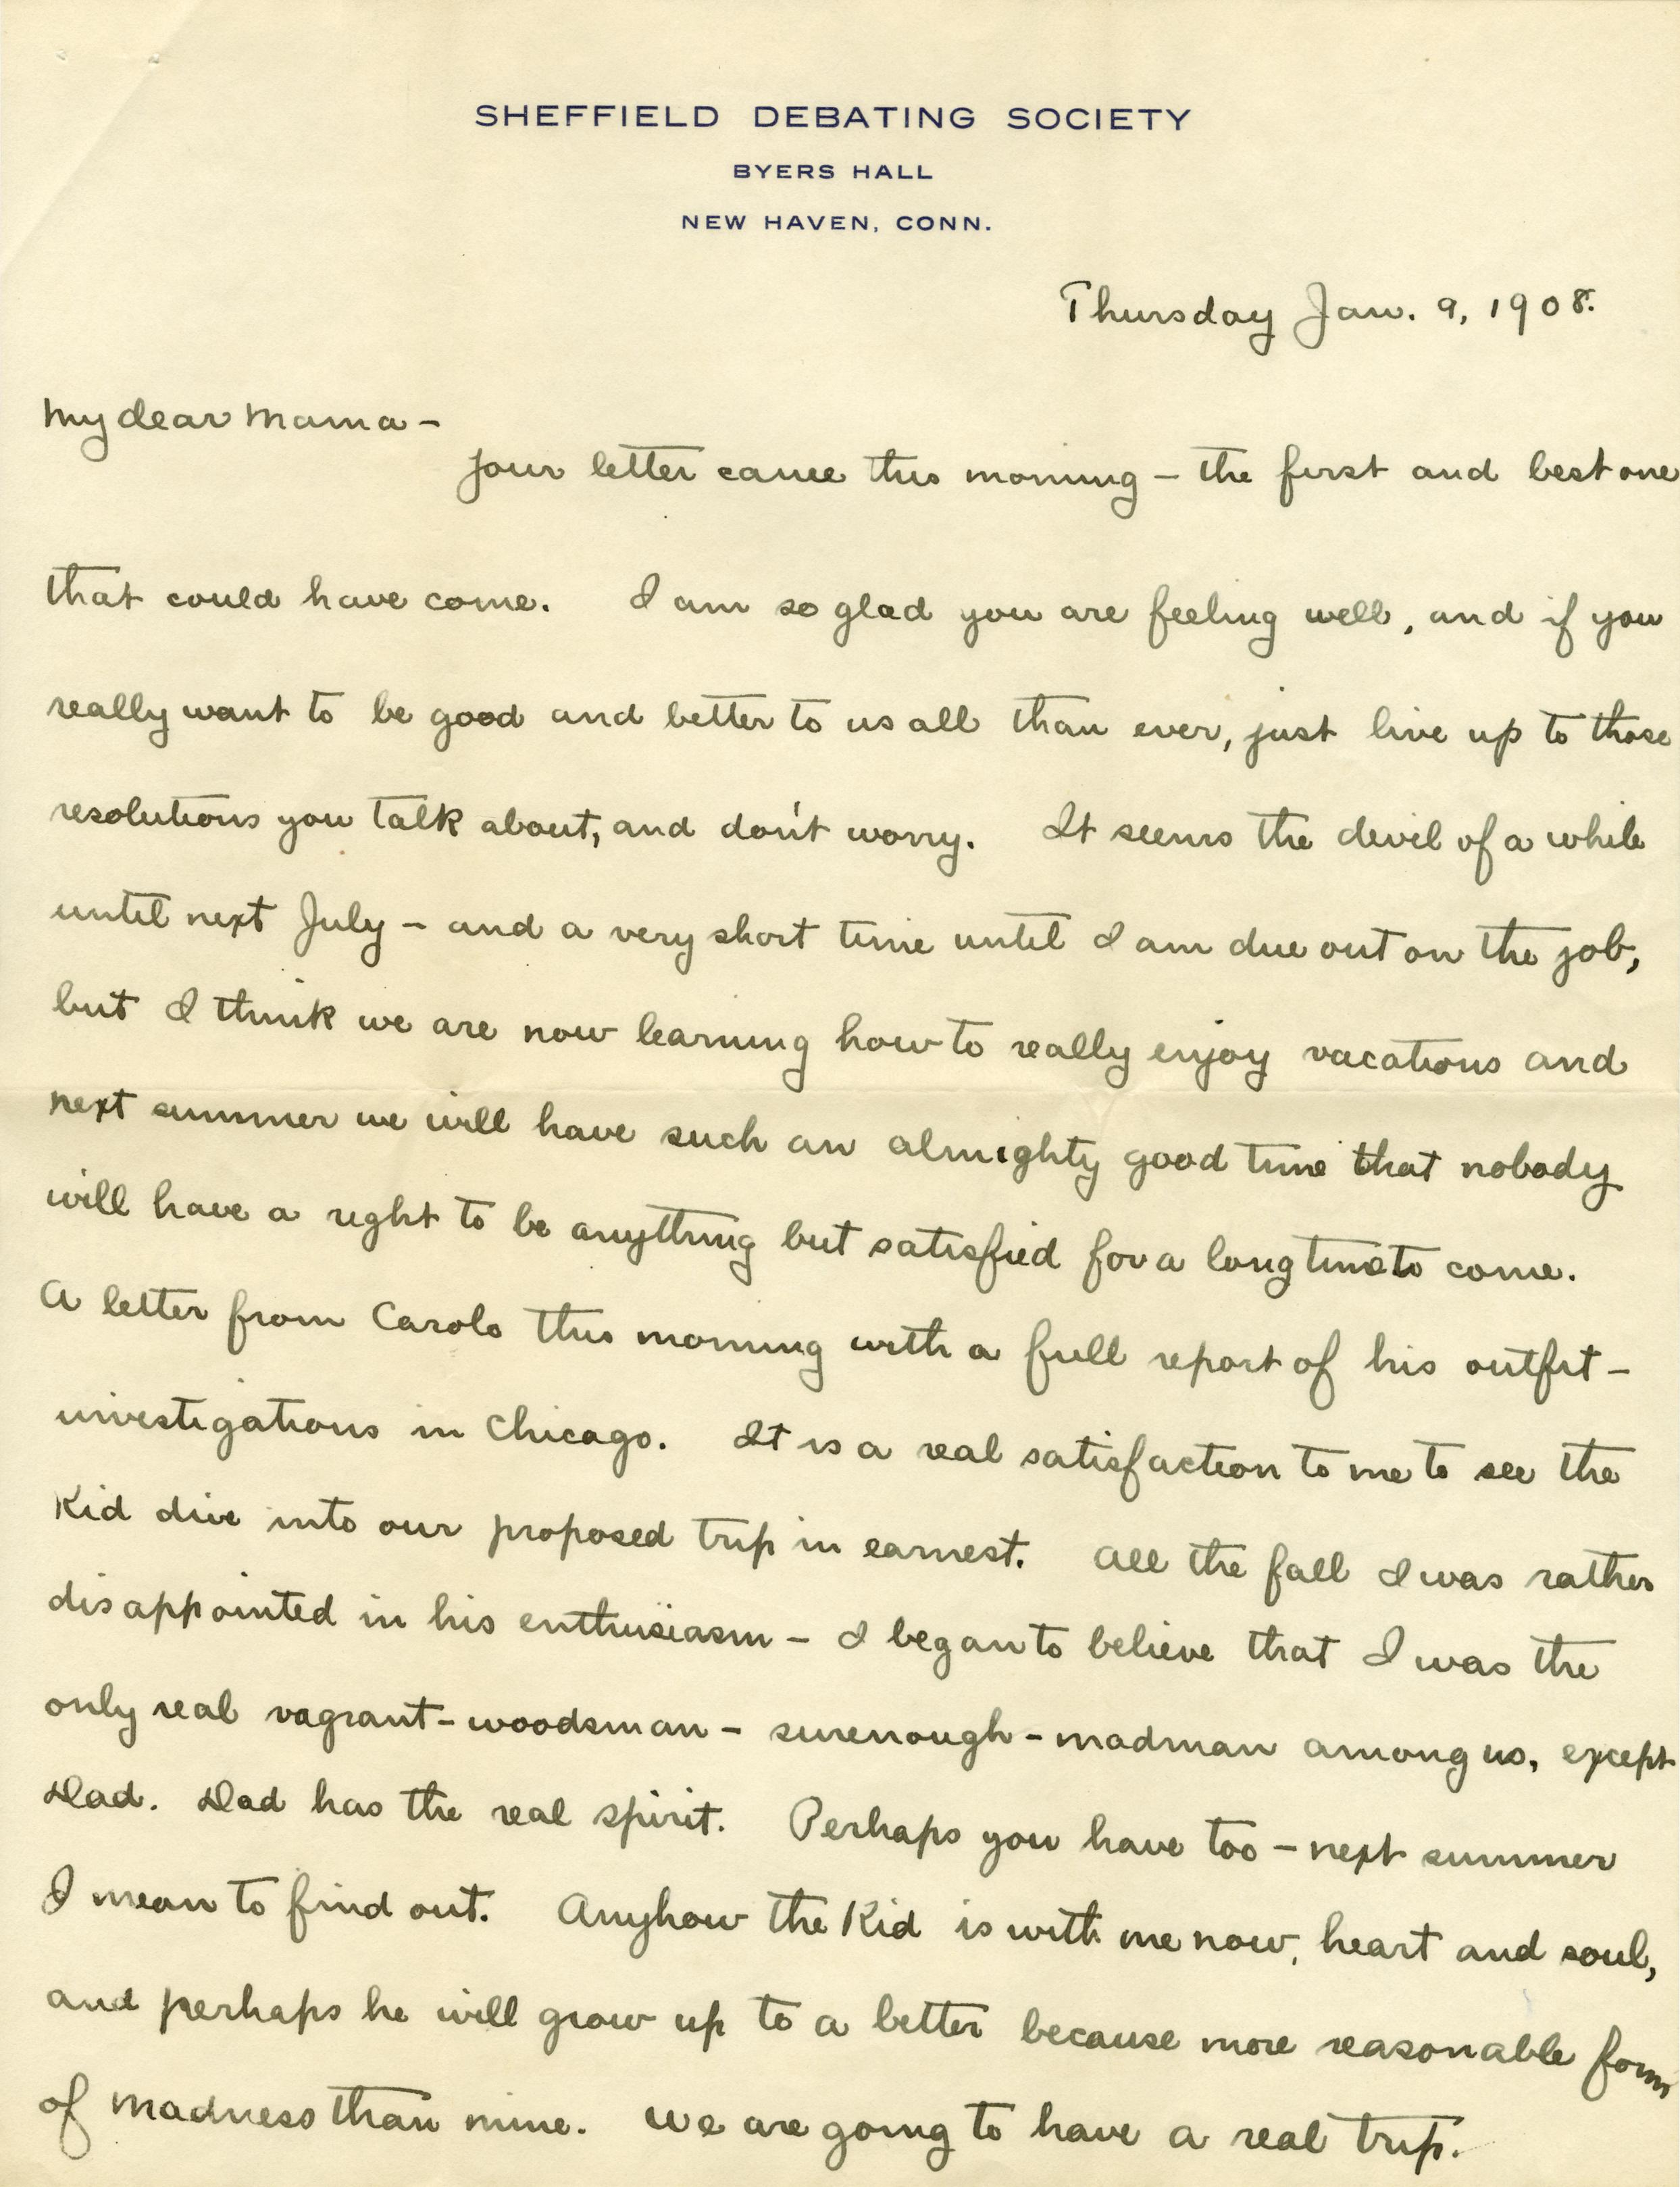 SHEFFIELD DEBATING SOCIETY
BYERS HALL
NEW HAVEN, CONN.
Thursday Jan. 9, 1908.
My dear Mama –
Your letter came this morning – the first and best one
that could have come. I am so glad you are feeling well, and if you
really want to be good and better to us all than ever, just live up to those
resolutions you talk about, and don't worry. It seems the devil of a while
until next July – and a very short time until I am due out on the job,
but I think we are now learning how to really enjoy vacations and
next summer we will have such an almighty good time that nobody
will have a right to be anything but satisfied for a long time to come.
A letter from Carolo this morning with a full report of his outfit –
investigations in Chicago. It is a real satisfaction to me to see the
Kid dive into our proposed trip in earnest. All the fall I was rather
disappointed in his enthusiasm – I began to believe that I was the
only real vagrant-woodsman – surenough – madman among us, except
Dad. Dad has the real spirit. Perhaps you have too – next summer
I mean to find out. Anyhow the Kid is with me now, heart and soul,
and perhaps he will grow up to a better because more reasonable form
of madness than mine. We are going to have a real trip.